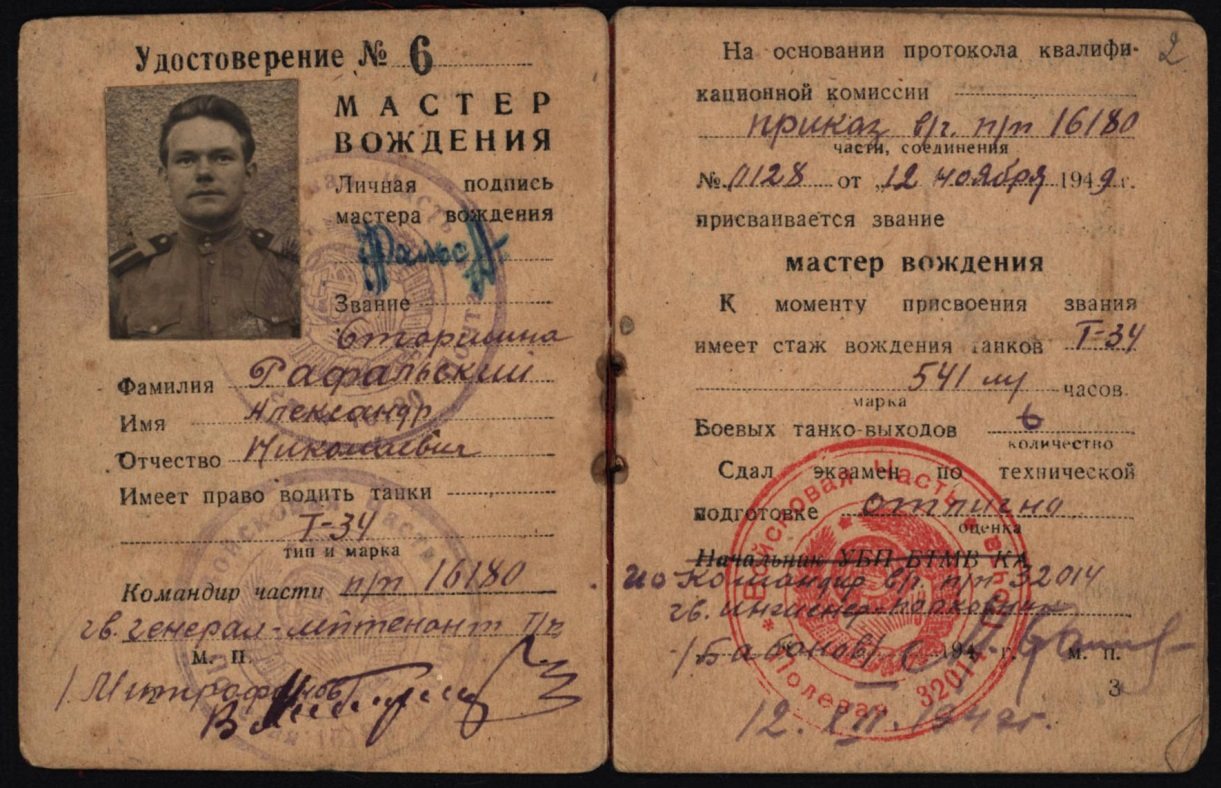 Удостоверение № 6
МАСТЕР
ВОЖДЕНИЯ
Личная подпись
мастера вождения
Звание
Старшина
Фамилия Рафальский
Имя Александр
Отчество Николаевич
Имеет право водить танки
Т-34
тип и марка
Командир части п/п 16180
гв. генерал-лейтенант т/в
м. п.
/Митрофанов/
2
На основании протокола квалифи-
кационной комиссии
приказ в/ч. п/п 16180
части, соединения
№ 0128 от „12 ноября 1949 г.
присваивается звание
мастер вождения
К моменту присвоения звания
имеет стаж вождения танков Т-34
541 часов
марка
Боевых танко-выходов 6
количество
Сдал экзамен по технической
подготовке отлично
оценка
Начальник УБП БТМВ КА
Командир в/ч. п/п 32014
гв. инженер-полковник
/Бабанов/ 194 г. м. п.
3
Войсковая Часть * Полевая Почта 32014 *